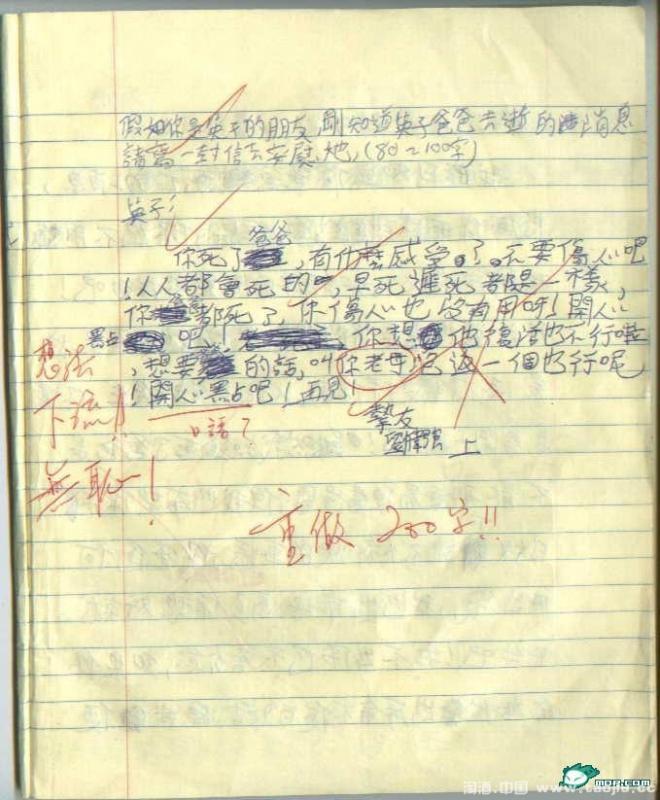 假如你是英子的朋友,剛知道英子爸爸去逝的消息
請寫一封信去安慰她,(80~100字)
英子:
爸爸
你死了,有什麼感受。了。不要傷心吧
!人人都會死的,早死遲死都是一樣,
你爸爸都死了,你傷心也沒有用呀!開心
點吧!你想他復活也不行啦
,想要的話,叫你老母泡返一個也行呢
!開心點吧!再見!
摯友
劉偉強 上
想法
下流!!
無恥!
口語?
重做 200字!!
mop.com
淘酒.中国 www.taojiu.cc